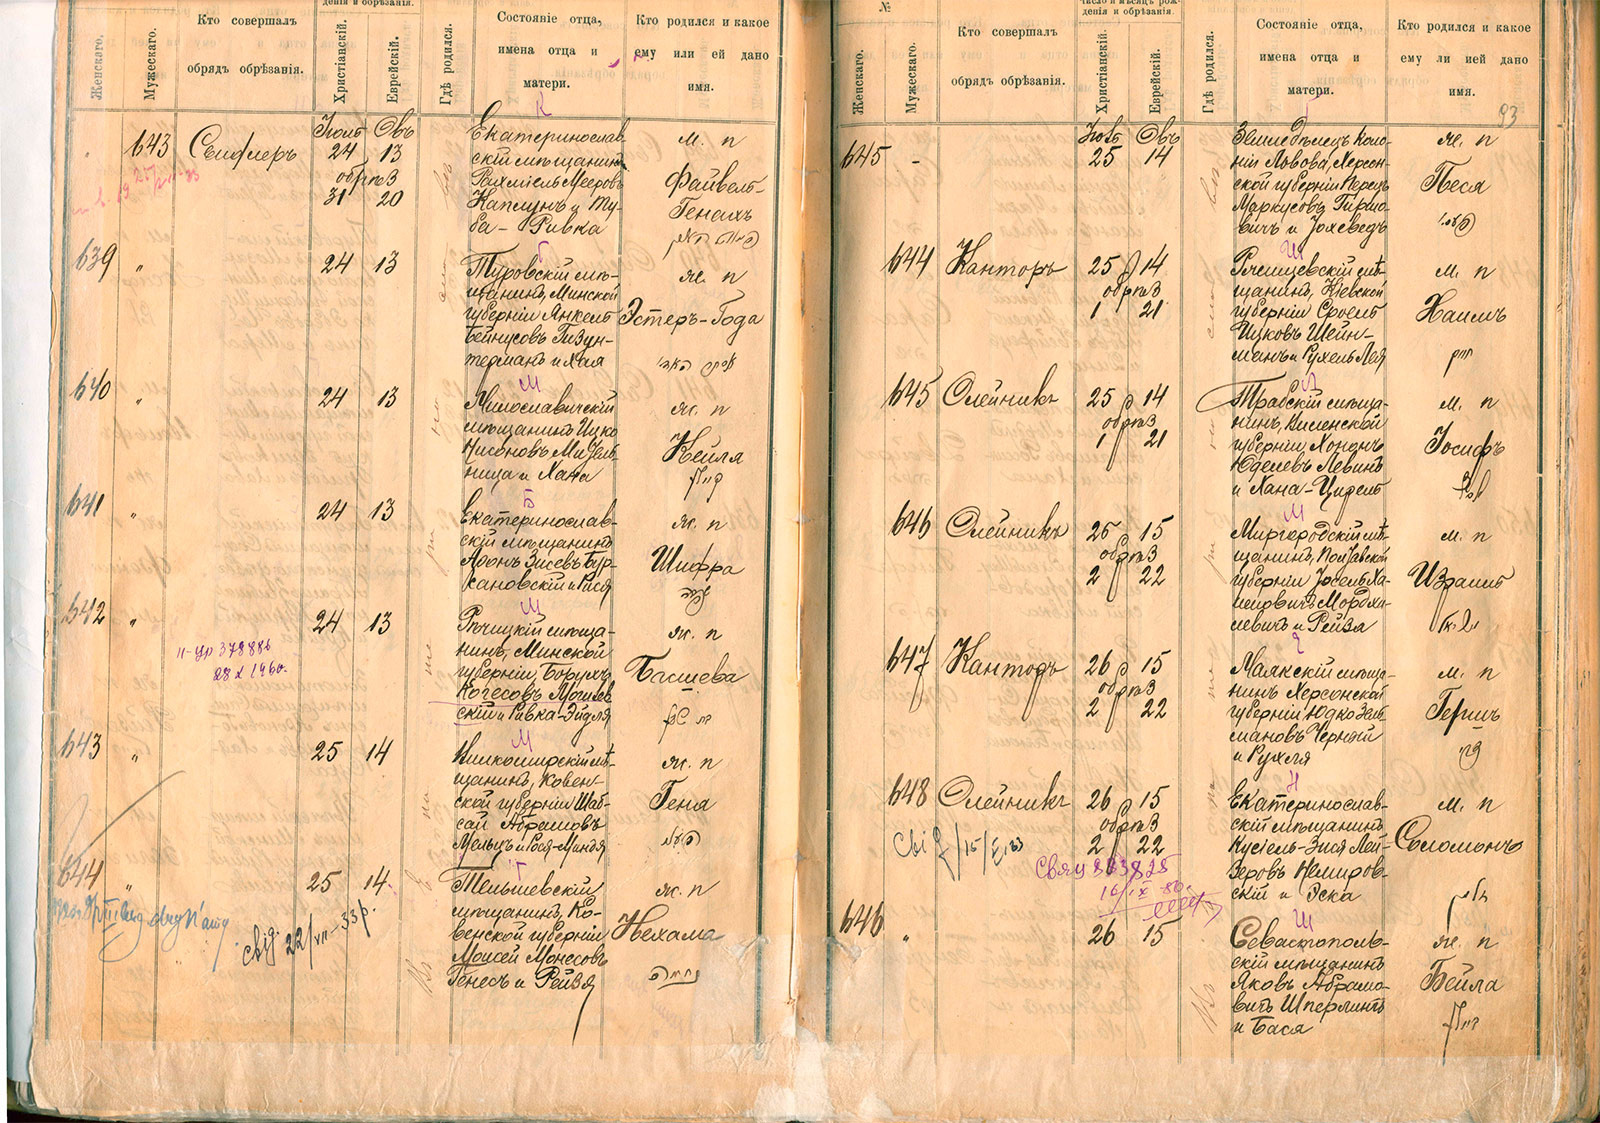 дения и обрѣзанія.
Женскаго.
Мужескаго.
Кто совершалъ
обрядъ обрѣзанія.
Христіанскій.
Еврейскій.
Гдѣ родился.
Состояніе отца,
имена отца и
матери.
Кто родился и какое
ему или ей дано
имя.
К
643 Сендлеръ
Іюль Овъ
24 13
обрѣз
31 20
Екатеринослав
скій мѣщанинъ
Рахміель Мееровъ
Каплунъ и Ту-
ба-Ривка
м. п
Файвель-
Генахъ
639 "
24 13
Туровскій мѣ-
щанинъ, Минской
губерніи Янкель
Бейнусовъ Гизун-
терманъ и Хая
ж. п
Эстеръ-Года
М
640 "
24 13
Милославичскій
мѣщанинъ Ицко
Нисоновъ
ница и Хана
ж. п
Кейла
קיילא
Б
641 "
24 13
Екатеринослав-
скій мѣщанинъ
Аронъ Зисевъ Бур-
кановскій и Рися
ж. п
Шифра
שפרה
642 "
II-УР 378886
28 X 1960.
24 13
Рѣчицкій мѣща-
нинъ, Минской
губерніи, Борухъ
Могилев
скій и Ривка-Эйдля
ж. п
Басшева
М
643 "
25 14
Вилкомирскій мѣ-
щанинъ, Ковен-
ской губерніи Шаб-
сай Абрамовъ
Мельцъ и Рося-Миндя
ж. п
Геня
Г
644 "
25 14
свід. 22/VII-33р.
Тельшевскій
мѣщанинъ, Ко-
венской губерніи
Моисей Монесовъ
Генесъ и Рейзя
ж. п
Нехама
נחמה
№
Женскаго.
Мужескаго.
Кто совершалъ
обрядъ обрѣзанія.
Число и мѣсяцъ рож-
денія и обрѣзанія.
Христіанскій.
Еврейскій.
Гдѣ родился.
Состояніе отца,
имена отца и
матери.
Кто родился и какое
ему ли ией дано
имя.
93
645 -
Іюль Овъ
25 14
Земледѣлецъ коло-
ніи Львова, Херсон-
ской губерніи Перецъ
Маркусовъ Гиршо-
вичъ и Іохеведъ
ж. п
Песя
Ш
644 Канторъ
25 14
обрѣз
1 21
Ржищевскій мѣ-
щанинъ, Кіевской
губерніи Сроель
Ицковъ Шейн-
манъ и Рухель Лея
м. п
Хаимъ
חיים
Л
645 Олейникъ
25 14
обрѣз
1 21
Трабскій мѣща-
нинъ, Виленской
губерніи, Хононъ
Юделевъ Левинъ
и Хана-Цирель
м. п
Іосифъ
יוסף
М
646 Олейникъ
26 15
обрѣз
2 22
Миргородскій мѣ-
щанинъ, Полтавской
губерніи Іосель Ха-
имовичъ Мордха-
левичъ и Рейза
м. п
Израиль
Ч
647 Канторъ
26 15
обрѣз
2 22
Маякскій мѣща-
нинъ Херсонской
губерніи Юдко Зель-
мановъ Черный
и Рухля
м. п
Гершъ
Н
648 Олейникъ
26 15
обрѣз
2 22
16/IX 80.
Екатеринослав-
скій мѣщанинъ
Кусіель-Зися Лей-
зеровъ Немиров-
скій и Эска
м. п
Соломонъ
Ш
646 "
26 15
Севастополь-
скій мѣщанинъ
Яковъ Абрамо-
вичъ Шперлингъ
и Бася
ж. п
Бейла
ביילא